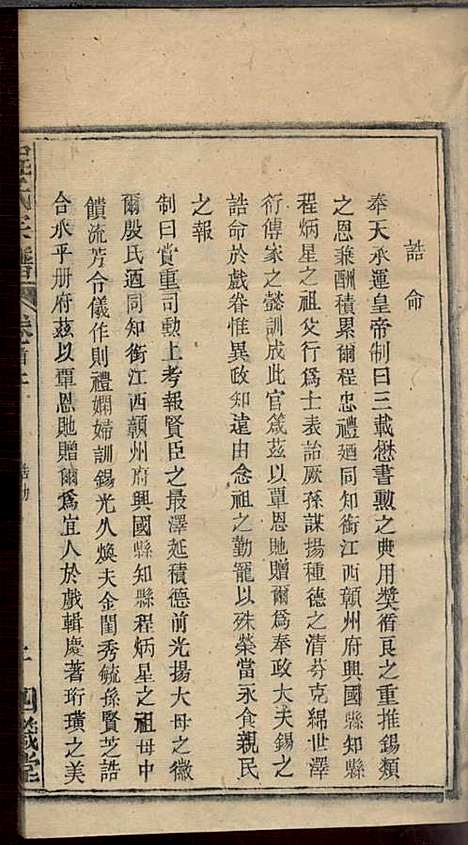 誥命
奉天承運皇帝制曰三載懋書勲之典用奬循良之重推錫類
之恩兼酬積累爾程忠禮廼同知銜江西贛州府興國縣知縣
程炳星之祖父行爲士表詒厥孫謀揚種德之清芬克綿世澤
衍傳家之懿訓成此官箴茲以覃恩貤贈爾爲奉政大夫錫之
誥命於戯眷惟異政知遠由念祖之勤寵以殊榮當永食親民
之報
制曰賞重司勲上考報賢臣之最澤延積德前光揚大母之徽
爾殷氏廼同知銜江西贛州府興國縣知縣程炳星之祖母中
饋流芳令儀作則禮嫻婦訓錫光久煥夫金閨秀毓孫賢芝誥
合永平册府茲以覃恩貤贈爾爲宜人於戯輯慶著珩璜之美
程氏宗譜
卷首上
誥勅